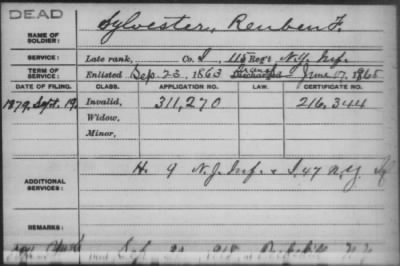 DEAD
NAME OF SOLDIER: Sylvester, Reuben F.
SERVICE: Late rank, Co. I, 115 Reg't N.Y. Inf.
TERM OF SERVICE: Enlisted Sep. 1863 Discharged June 17, 1865
DATE OF FILING. CLASS. APPLICATION NO. CERTIFICATE NO.
1879, Sept. 19. Invalid, 311,270 216,344
Widow,
Minor,
ADDITIONAL SERVICES: H. 9 N.J. Inf. & I. 47 N.Y.
REMARKS: